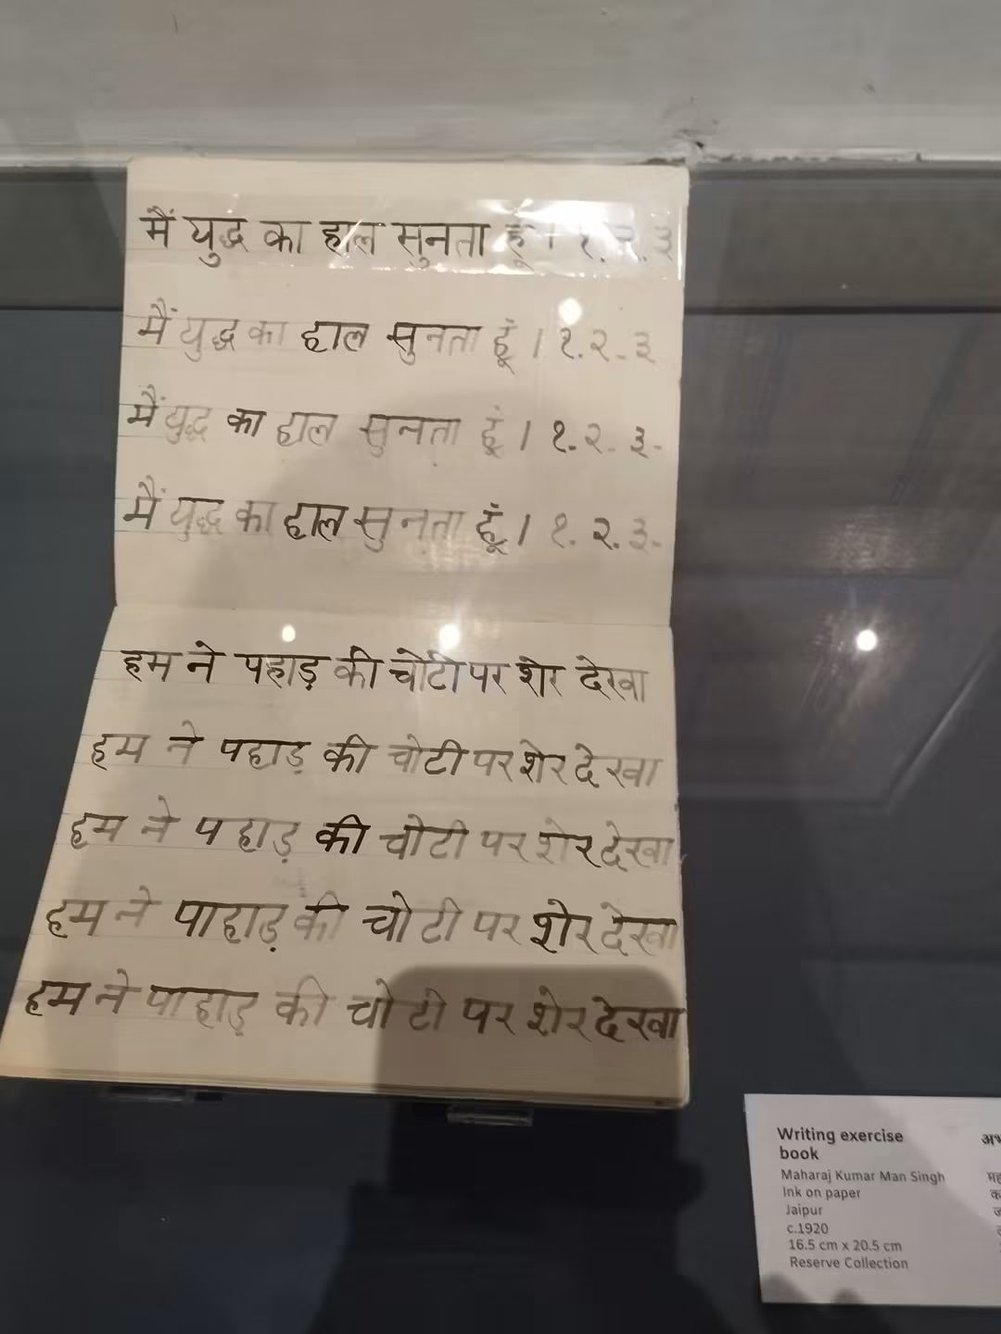 मैं युद्ध का हाल सुनता हूं । १. २. ३
मैं युद्ध का हाल सुनता हूं । १. २. ३
मैं युद्ध का हाल सुनता हूं । १. २. ३.
मैं युद्ध का हाल सुनता हूं । १. २. ३.
हम ने पहाड़ की चोटी पर शेर देखा
हम ने पहाड़ की चोटी पर शेर देखा
हम ने पहाड़ की चोटी पर शेर देखा
हम ने पाहाड़ की चोटी पर शेर देखा
हम ने पाहाड़ की चोटी पर शेर देखा
Writing exercise
book
Maharaj Kumar Man Singh
Ink on paper
Jaipur
c.1920
16.5 cm x 20.5 cm
Reserve Collection